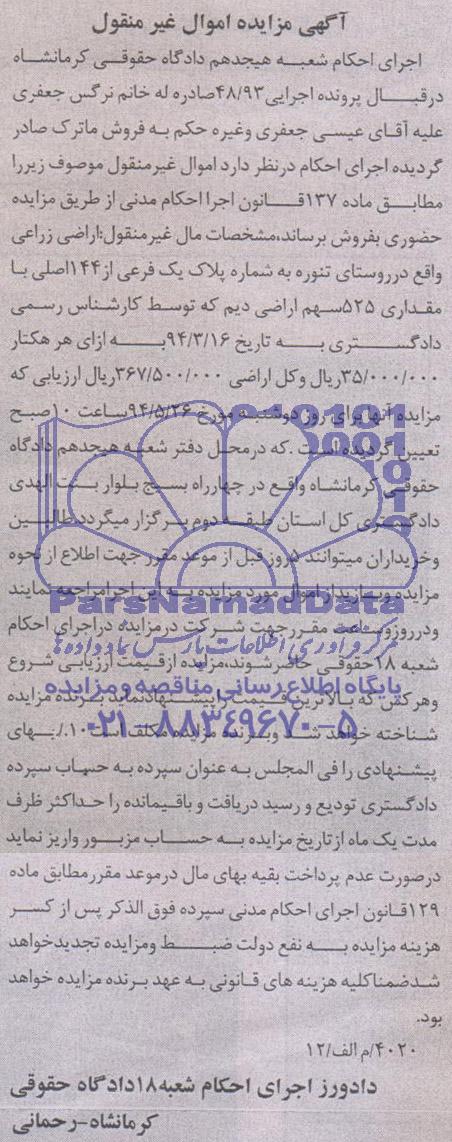 آگهی مزایده اموال غیر منقول
اجرای احکام شعبه هیجدهم دادگاه حقوقی کرمانشاه
درقبال پرونده اجرایی۴۸/۹۳صادره له خانم نرگس جعفری
علیه آقای عیسی جعفری وغیره حکم به فروش ماترک صادر
گردیده اجرای احکام درنظر دارد اموال غیرمنقول موصوف زیررا
مطابق ماده ۱۳۷قانون اجرا احکام مدنی از طریق مزایده
حضوری بفروش برساند،مشخصات مال غیرمنقول:اراضی زراعی
واقع درروستای تنوره به شماره پلاک یک فرعی از۱۴۴اصلی با
مقداری ۵۲۵سهم اراضی دیم که توسط کارشناس رسمی
دادگستری به تاریخ ۹۴/۳/۱۶به ازای هر هکتار
۳۵/۰۰۰/۰۰۰ریال وکل اراضی ۳۶۷/۵۰۰/۰۰۰ریال ارزیابی که
مزایده آنها برای روز دوشنبه مورخ ۹۴/۵/۲۶ساعت ۱۰صبح
تعیین گردیده است .که درمحل دفتر شعبه هیجدهم دادگاه
حقوقی کرمانشاه واقع در چهارراه بسیج بلوار بنت الهدی
دادگستری کل استان طبقه دوم برگزار میگردد.طالبین
وخریداران میتوانند ۵روز قبل از موعد مقرر جهت اطلاع از نحوه
مزایده وبازدید از اموال مورد مزایده به این اجرامراجعه نمایند
ودرروزوساعت مقرر جهت شرکت درمزایده دراجرای احکام
شعبه ۱۸حقوقی حاضرشوند،مزایده ازقیمت ارزیابی شروع
وهرکس که بالاترین قیمت را پیشنهادنماید برنده مزایده
شناخته خواهد شد وبرنده مزایده مکلف است ۱۰٪بهای
پیشنهادی را فی المجلس به عنوان سپرده به حساب سپرده
دادگستری تودیع و رسید دریافت و باقیمانده را حداکثر ظرف
مدت یک ماه ازتاریخ مزایده به حساب مزبور واریز نماید
درصورت عدم پرداخت بقیه بهای مال درموعد مقررمطابق ماده
۱۲۹قانون اجرای احکام مدنی سپرده فوق الذکر پس از کسر
هزینه مزایده به نفع دولت ضبط ومزایده تجدیدخواهد
شدضمناکلیه هزینه های قانونی به عهد برنده مزایده خواهد
بود.
۴۰۲۰/م الف/۱۲
دادورز اجرای احکام شعبه۱۸دادگاه حقوقی
کرمانشاه-رحمانی
ParsNamadData
مرکز فرآوری اطلاعات پارس نماد داده ها
پایگاه اطلاع رسانی مناقصه و مزایده
۰۲۱-۸۸۳۴۹۶۷۰-۵